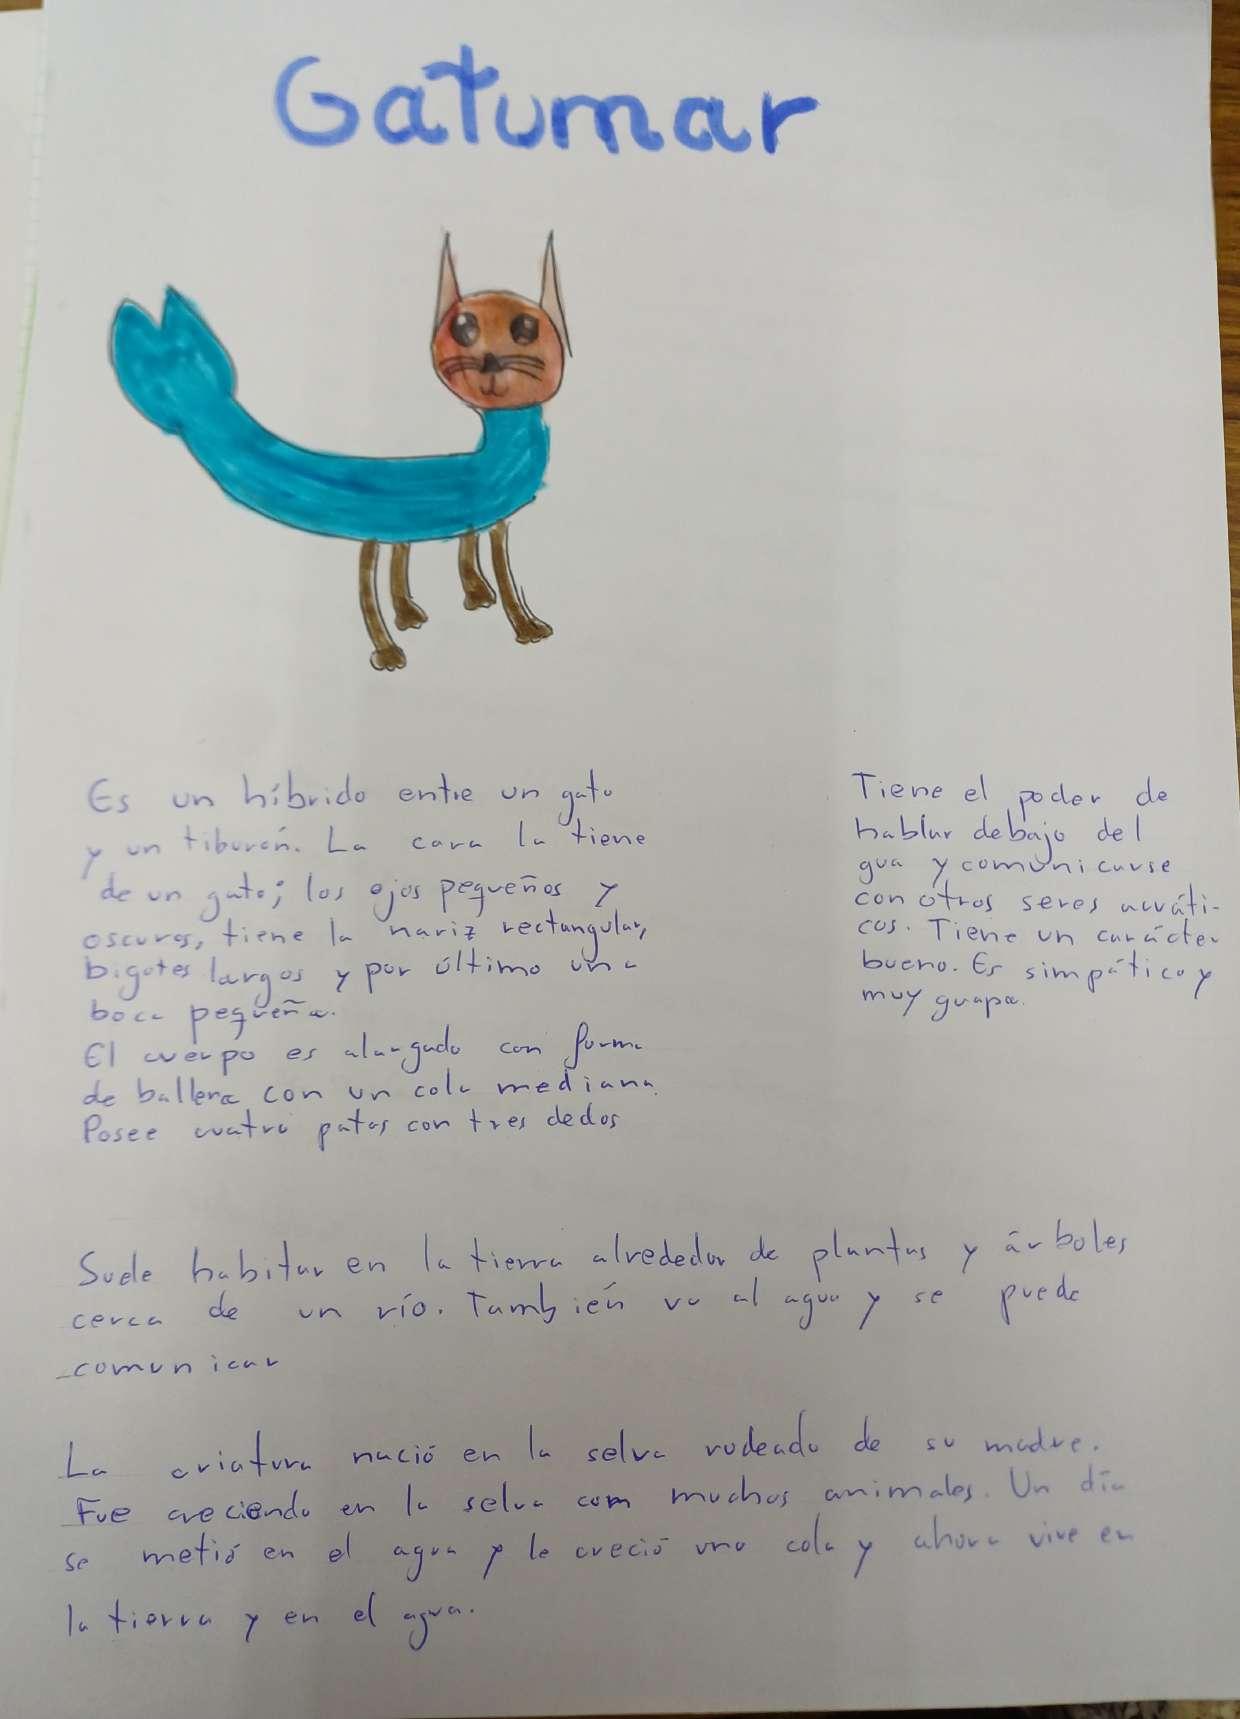 Gatumar
Es un híbrido entre un gato
y un tiburón. La cara la tiene
de un gato; los ojos pequeños y
oscuros, tiene la nariz rectangular,
bigotes largos y por último una
boca pequeña.
El cuerpo es alargado con forma
de ballena con un cola mediana.
Posee cuatro patas con tres dedos
Tiene el poder de
hablar debajo del
gua y comunicarse
con otros seres acuáti-
cos. Tiene un carácter
bueno. Es simpático y
muy guapo.
Suele habitar en la tierra alrededor de plantas y árboles
cerca de un río. También va al agua y se puede
comunicar
La criatura nació en la selva rodeado de su madre.
Fue creciendo en la selva com muchos animales. Un día
se metió en el agua y le creció una cola y ahora vive en
la tierra y en el agua.